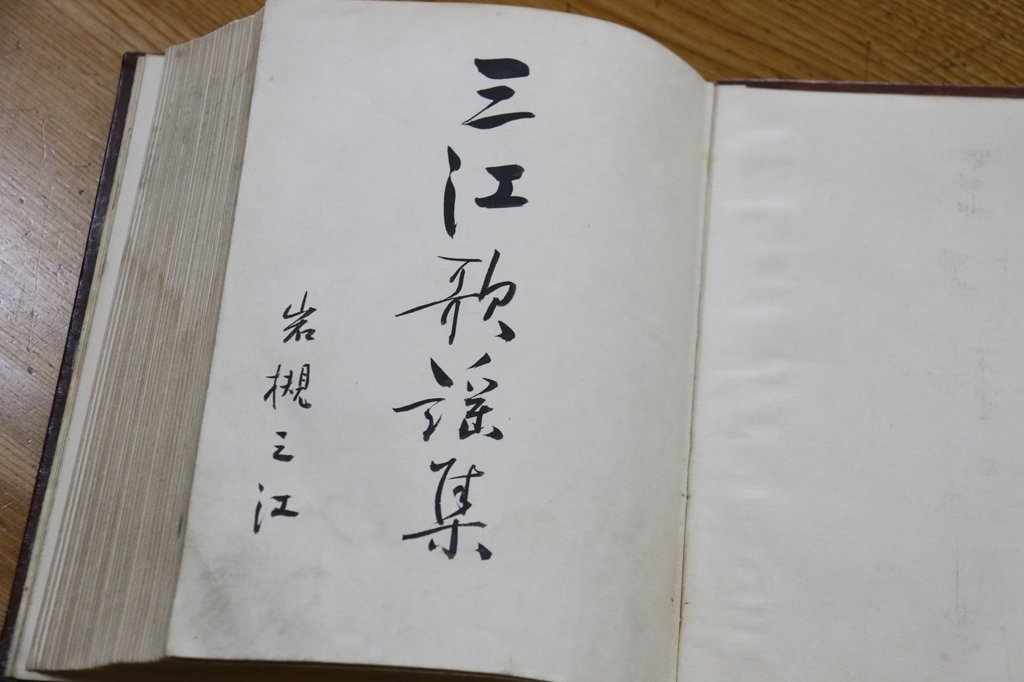 三江歌謡集
岩槻三江